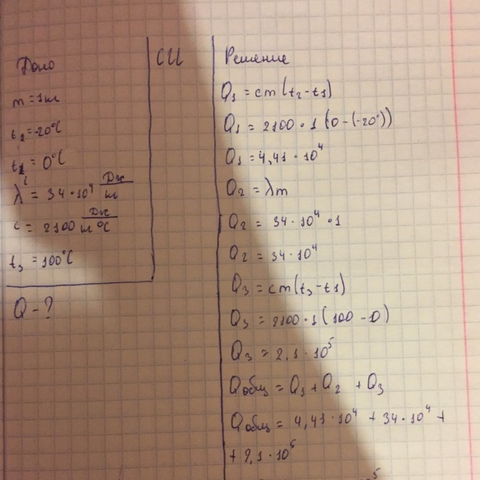 Дано
m = 1 кг
t1 = -20°C
t2 = 0°C
λ = 34·10⁴ Дж/кг
c = 2100 Дж/кг°C
t3 = 100°C
Q - ?
СИ
Решение
Q1 = cm(t2-t1)
Q1 = 2100·1(0-(-20°))
Q1 = 4,41·10⁴
Q2 = λm
Q2 = 34·10⁴·1
Q2 = 34·10⁴
Q3 = cm(t3-t1)
Q3 = 2100·1(100-0)
Q3 = 2,1·10⁵
Qобщ = Q1 + Q2 + Q3
Qобщ = 4,41·10⁴ + 34·10⁴ +
+ 2,1·10⁵